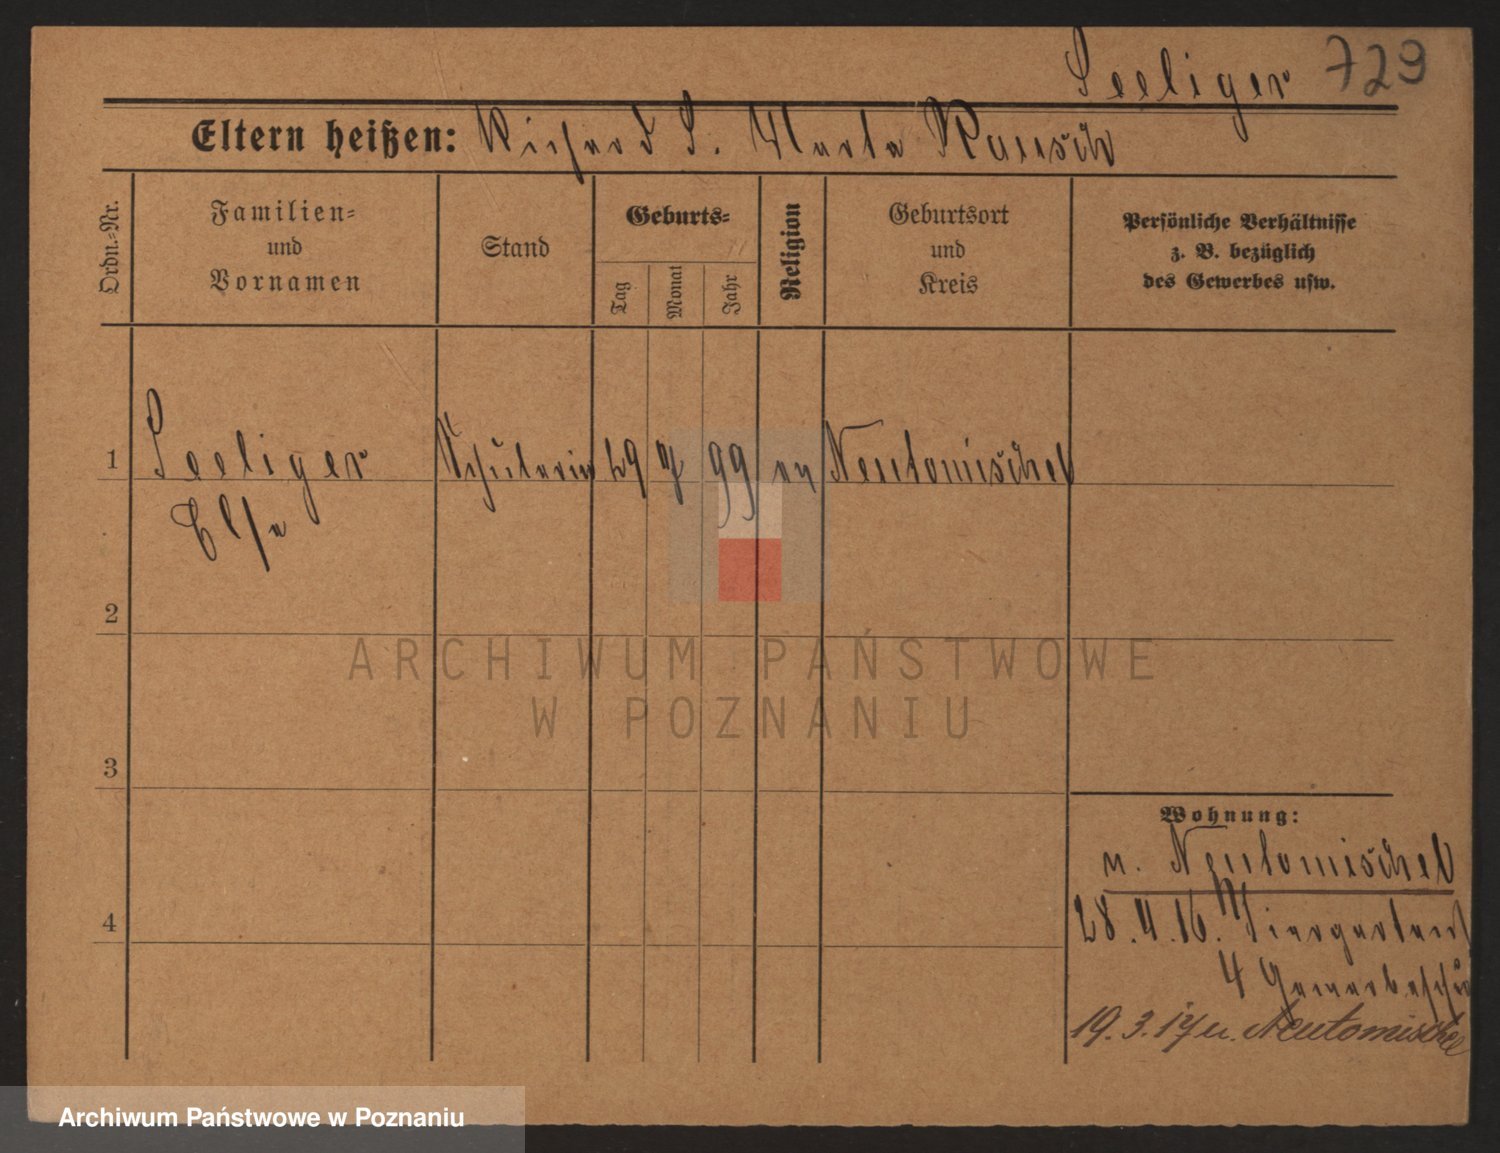 Seeliger 729
Eltern heißen: Richard S. Marta Rausch
Ordn.=Nr.
Familien=
und
Vornamen
Stand
Geburts=
Tag
Monat
Jahr
Religion
Geburtsort
und
Kreis
Persönliche Verhältnisse
z. B. bezüglich
des Gewerbes usw.
1 Seeliger Schülerin 29 7 99 ev Neutomischel
Else
2
3
4
Wohnung:
n. Neutomischel
28.4.16. Tiergartenst
4 Gewerbeschü
19.3.17 n. Neutomischel
ARCHIWUM PAŃSTWOWE
W POZNANIU
Archiwum Państwowe w Poznaniu